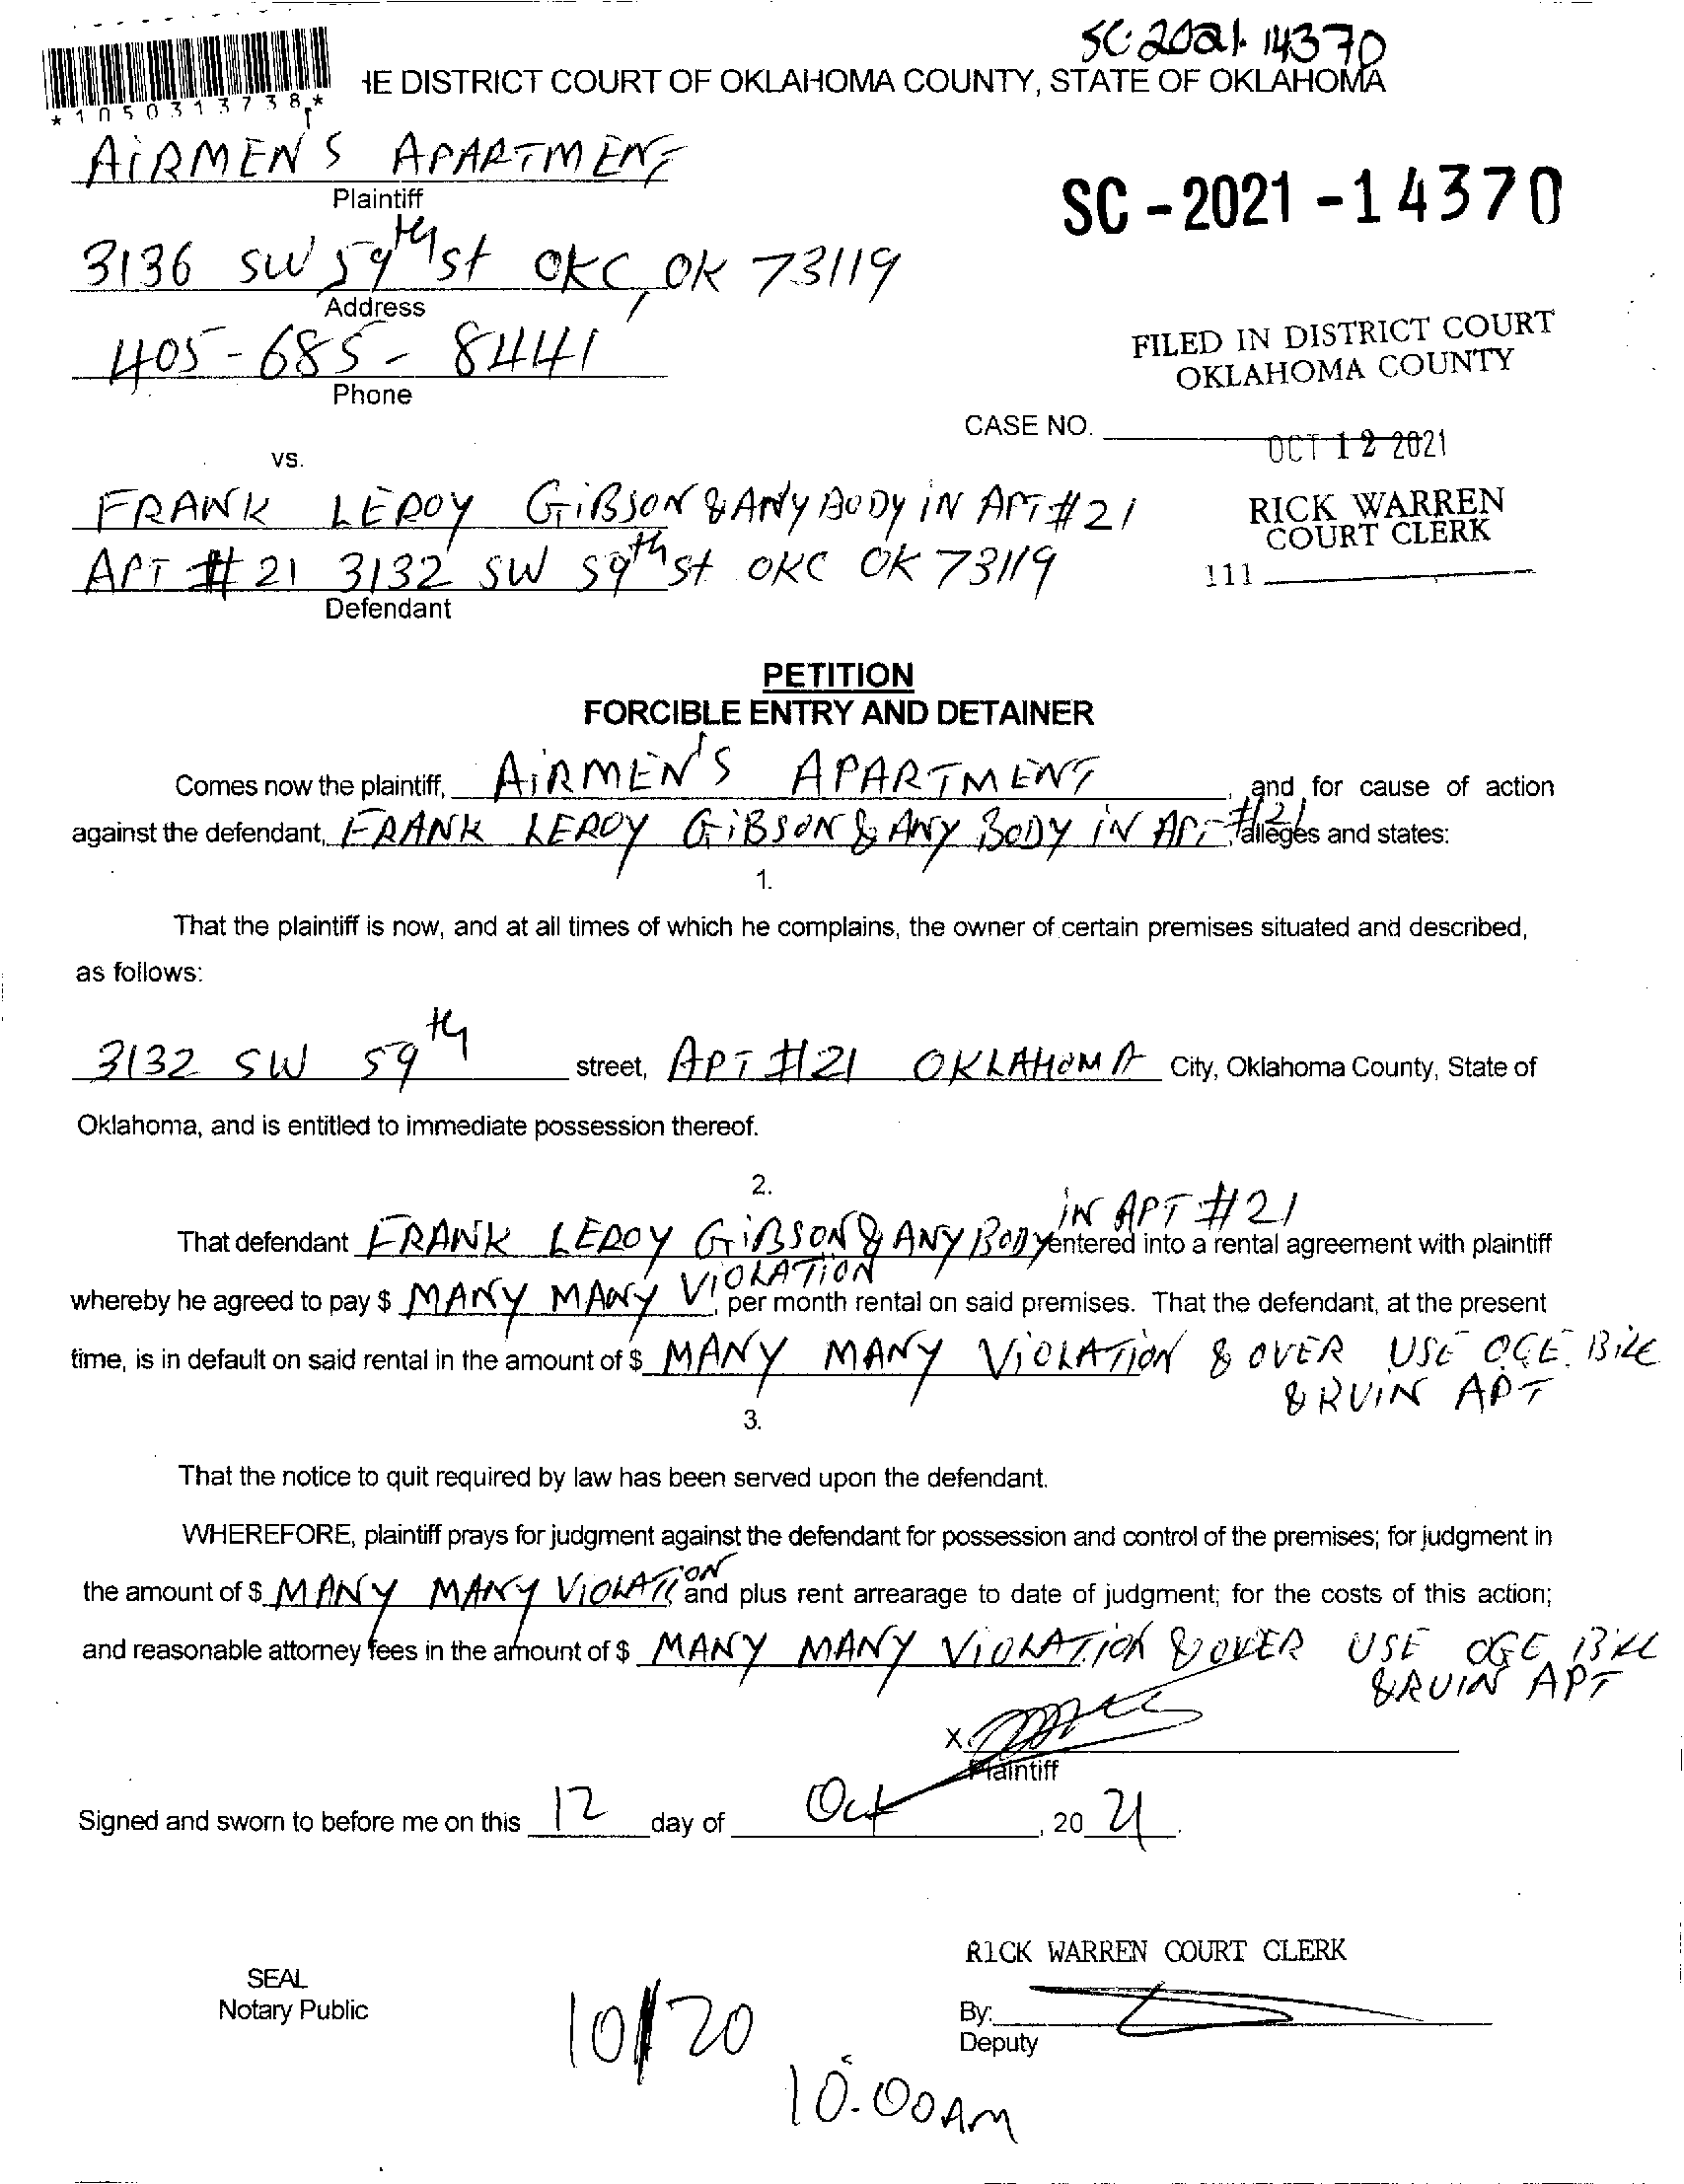 SC-2021-14370
*1050313738*
HE DISTRICT COURT OF OKLAHOMA COUNTY, STATE OF OKLAHOMA
AIRMEN'S APARTMENT
Plaintiff
SC-2021-14370
3136 SW 59th st OKC, OK 73119
Address
405-685-8441
Phone
FILED IN DISTRICT COURT
OKLAHOMA COUNTY
CASE NO.
OCT 12 2021
vs.
FRANK LEROY GIBSON & ANY BODY IN APT #21
RICK WARREN
COURT CLERK
APT #21 3132 SW 59th st OKC OK 73119
111
Defendant
PETITION
FORCIBLE ENTRY AND DETAINER
Comes now the plaintiff, AIRMEN'S APARTMENT, and for cause of action
against the defendant, FRANK LEROY GIBSON & ANY BODY IN APT #21, alleges and states:
1.
That the plaintiff is now, and at all times of which he complains, the owner of certain premises situated and described,
as follows:
3132 SW 59th street, APT #21 OKLAHOMA City, Oklahoma County, State of
Oklahoma, and is entitled to immediate possession thereof.
2.
That defendant FRANK LEROY GIBSON & ANY BODY IN APT #21 entered into a rental agreement with plaintiff
whereby he agreed to pay $ MANY MANY VIOLATION per month rental on said premises. That the defendant, at the present
time, is in default on said rental in the amount of $ MANY MANY VIOLATION & OVER USE OGE. Bill
& RUIN APT
3.
That the notice to quit required by law has been served upon the defendant.
WHEREFORE, plaintiff prays for judgment against the defendant for possession and control of the premises; for judgment in
the amount of $ MANY MANY VIOLATION and plus rent arrearage to date of judgment; for the costs of this action;
and reasonable attorney fees in the amount of $ MANY MANY VIOLATION & OVER USE OGE Bill
& RUIN APT
X
Plaintiff
Signed and sworn to before me on this 12 day of Oct, 20 21.
RICK WARREN COURT CLERK
SEAL
Notary Public
By:
Deputy
10/20
10:00AM